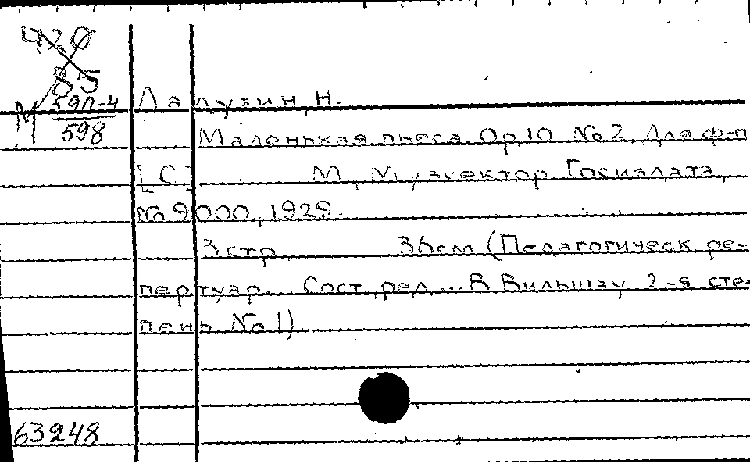 420
85
М 59П-4
598
Ладухин, Н.
Маленькая пьеса. Ор. 10 № 2. Для ф-п
[С.] М., Музсектор Госиздата,
№ 9000, 1929.
3 стр. 36см (Педагогическ. ре-
пертуар... Сост. ред... В. Вильшау. 2-я сте-
пень № 1)
63248